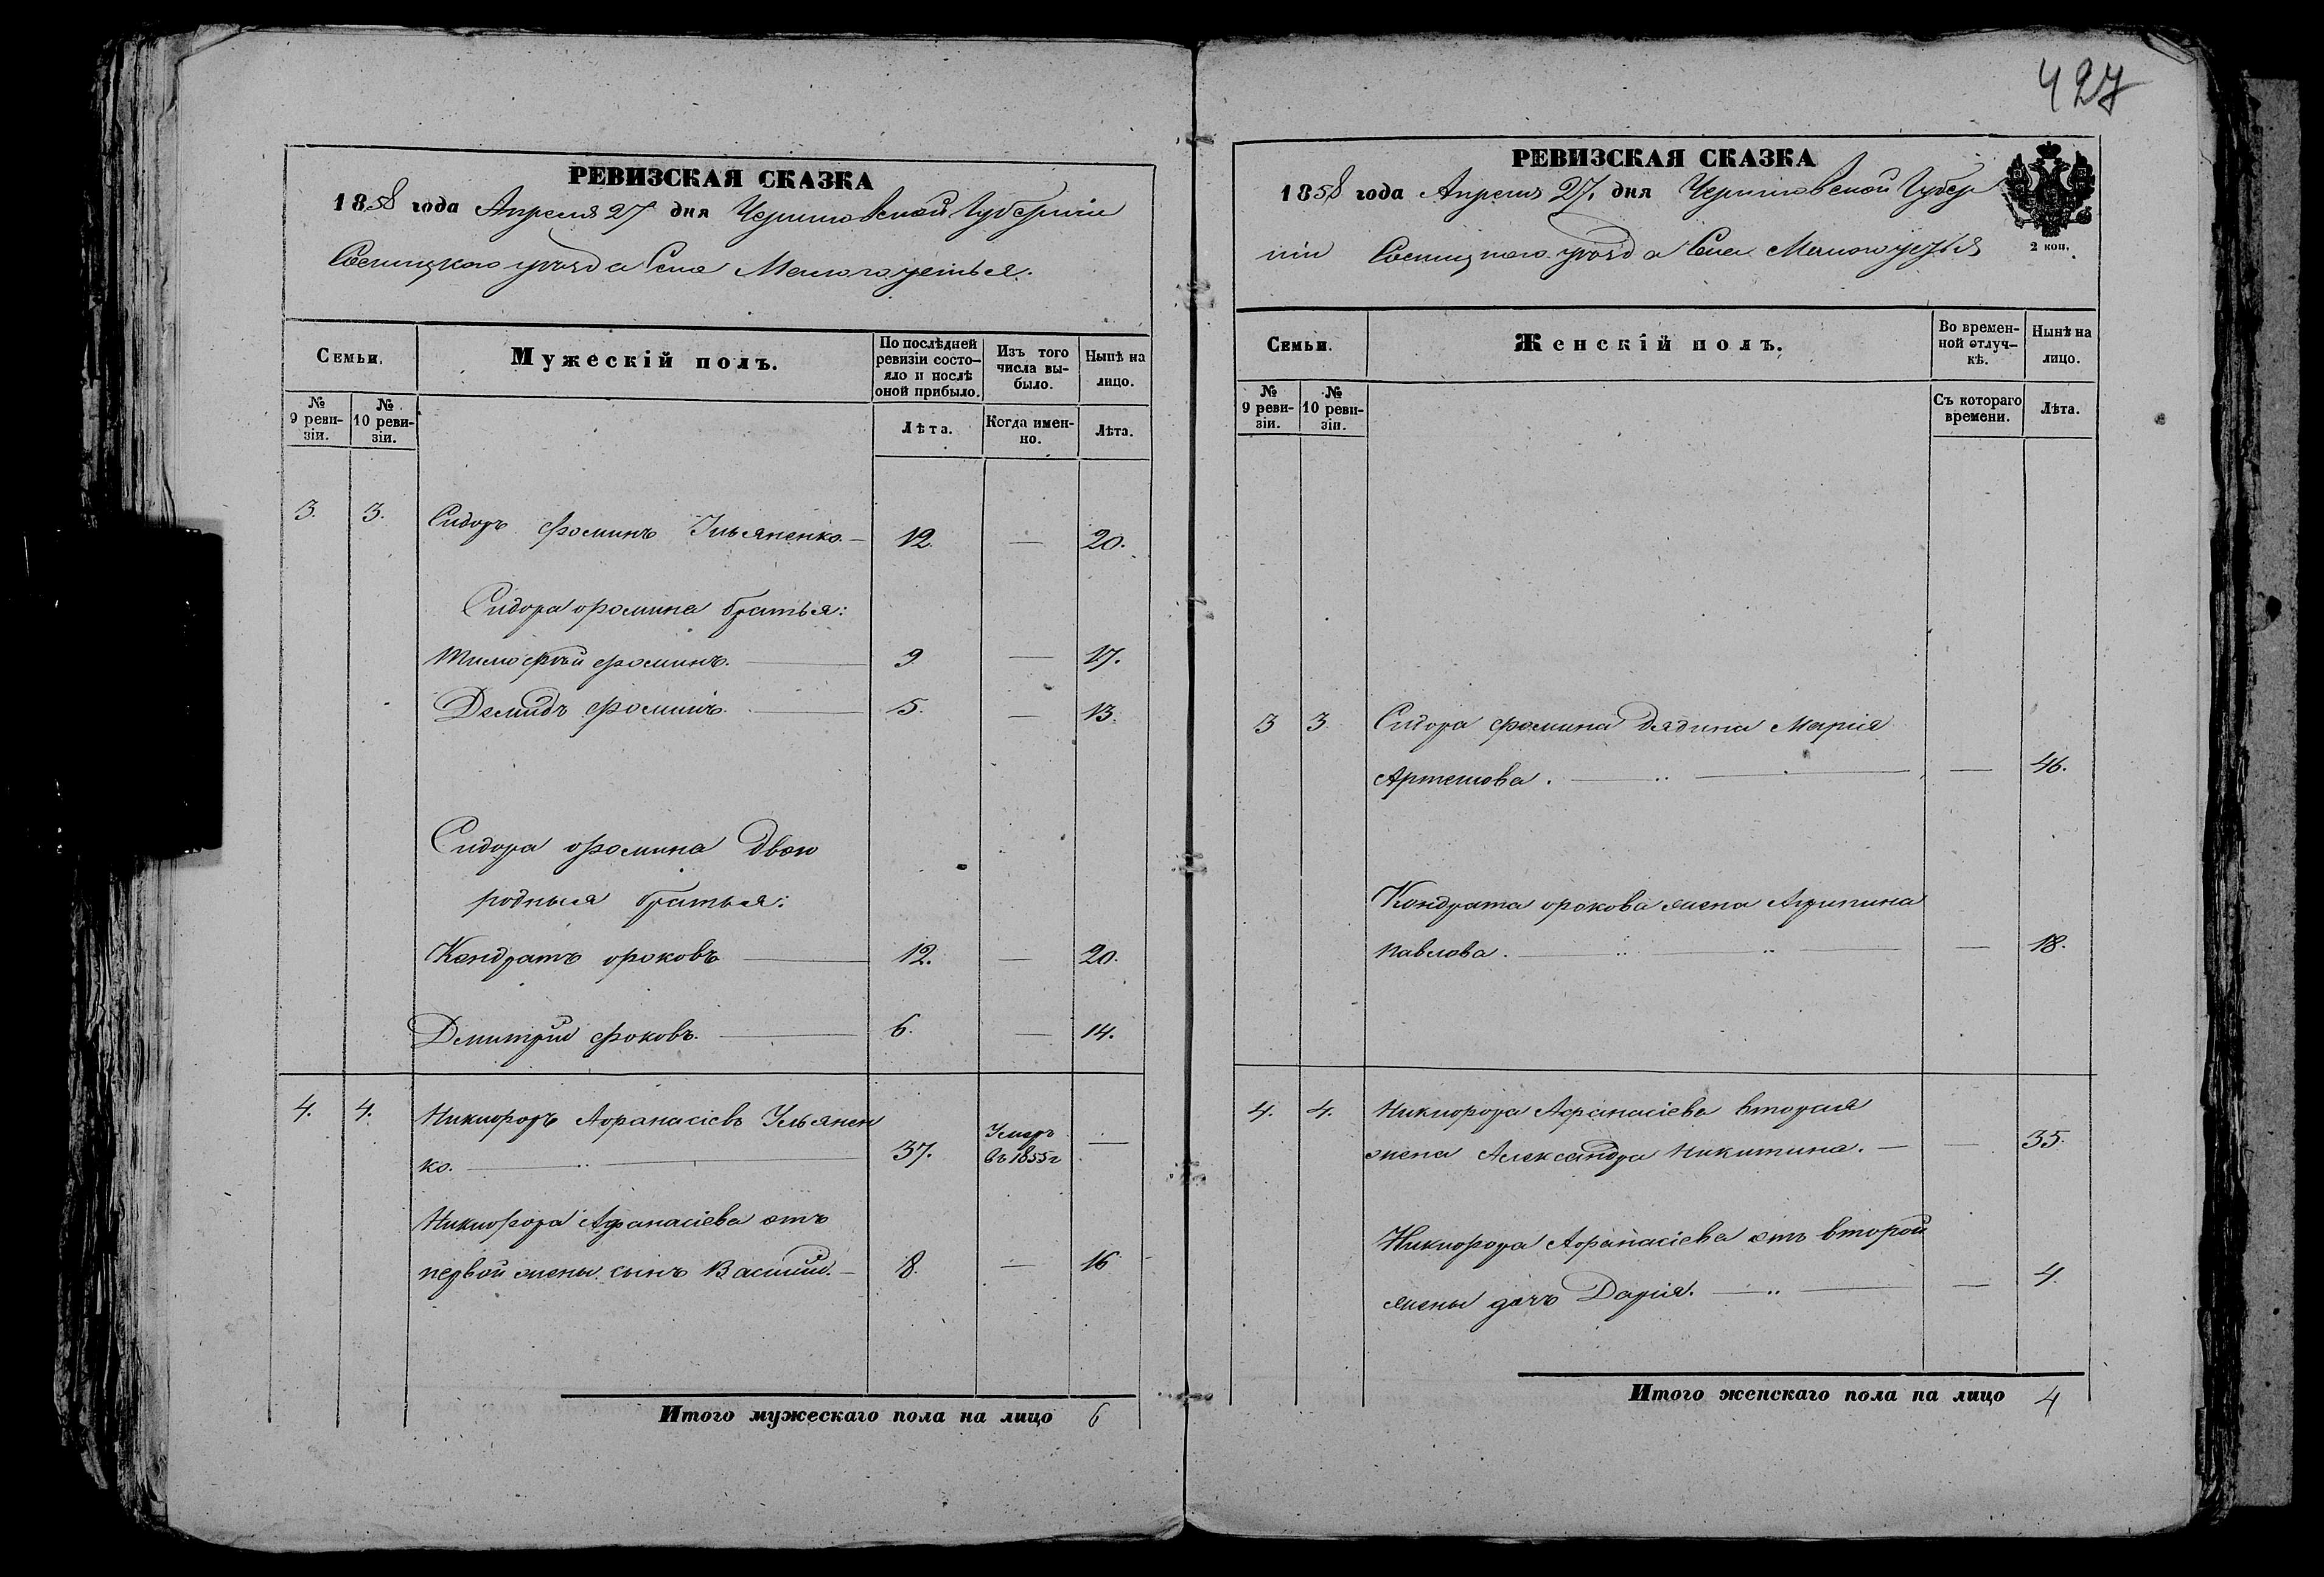 427
РЕВИЗСКАЯ СКАЗКА
1858 года Апреля 27 дня Черниговской Губерніи
Сосницкаго уѣзда Села Малого устья.
Семьи.
Мужескій полъ.
По послѣдней ревизіи состо-яло и послѣ оной прибыло.
Изъ того числа вы-было.
Нынѣ на лицо.
№ 9 реви-зіи.
№ 10 реви-зіи.
Лѣта.
Когда имен-но.
Лѣта.
3. 3. Сидоръ Фоминъ Ульяненко. — 12. — 20.
Сидора Фомина братья:
Тимофѣй Фоминъ. — 9 — 17.
Демидъ Фоминъ. — 5. — 13.
Сидора Фомина двою
родныя братья:
Кондратъ Фоковъ — 12. — 20.
Дмитрій Фоковъ. — 6. — 14.
4. 4. Никифоръ Афанасіевъ Ульянен
ко. — 37. Умеръ въ 1855 г —
Никифора Афанасіева отъ
первой жены сынъ Василій. — 8. — 16
Итого мужескаго пола на лицо 6
РЕВИЗСКАЯ СКАЗКА
1858 года Апреля 27. дня Черниговской Губер
ніи Сосницкаго уѣзда Села Малого устья
2 коп.
Семьи.
Женскій полъ.
Во времен-ной отлуч-кѣ.
Нынѣ на лицо.
№ 9 реви-зіи.
№ 10 реви-зіи.
Съ котораго времени.
Лѣта.
3 3 Сидора Фомина дядина Марія
Артемова. — — 46.
Кондрата Фокова жена Агрипина
Павлова. — — 18.
4. 4. Никифора Афанасіева вторая
жена Александра Никитина. — — 35.
Никифора Афанасіева отъ второй
жены дочь Дарія. — — 4.
Итого женскаго пола на лицо 4